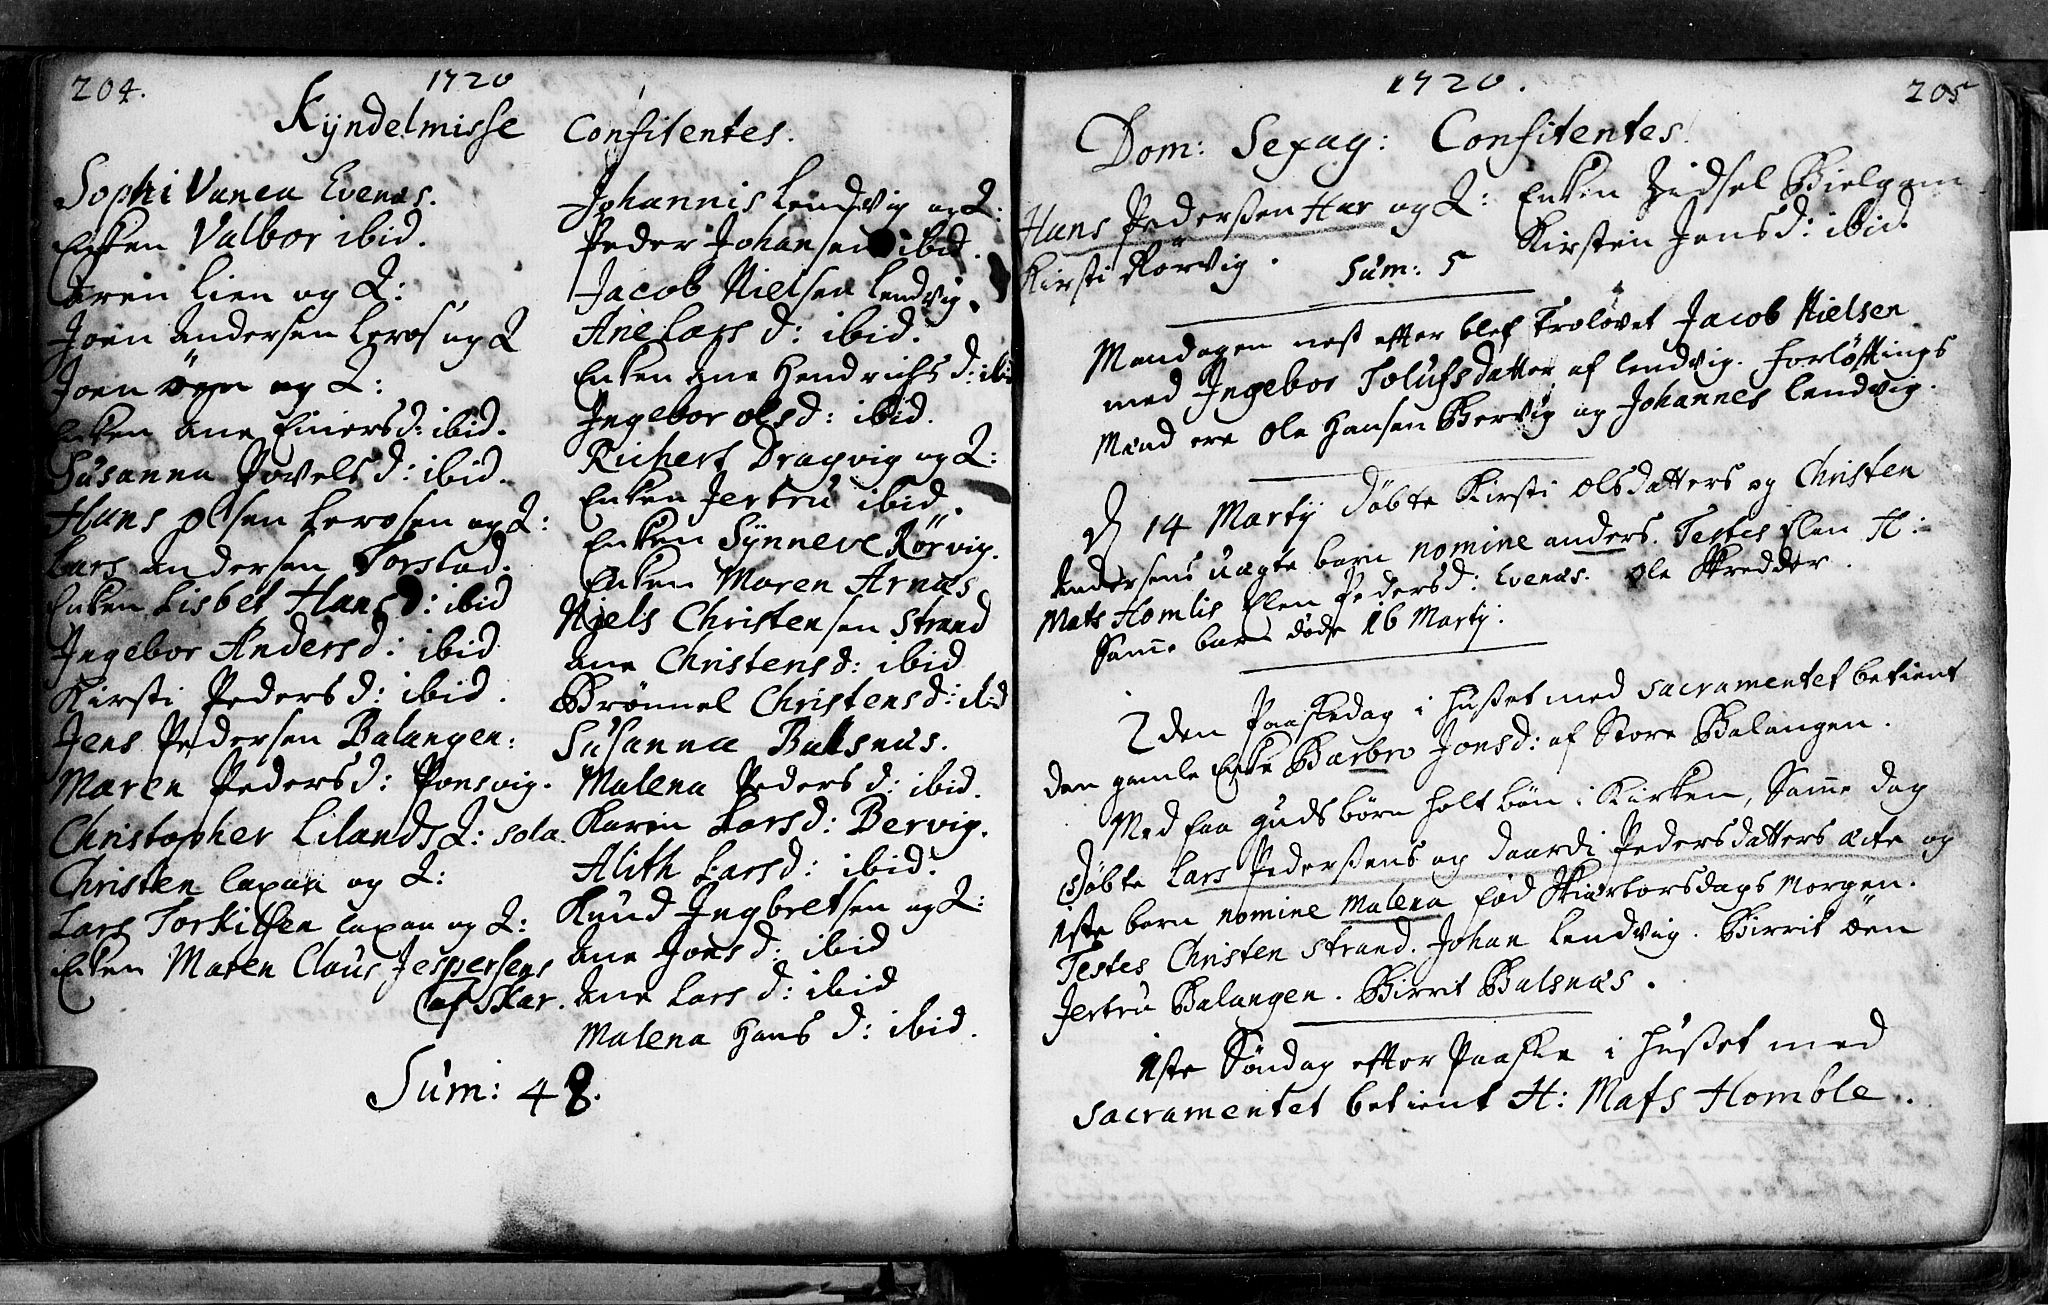 204.
1720
Kyndelmisse Confitentes.
Sophi Vanea Evenæs.
Enken Valbor ibid.
Aren Lien og Q:
Joen andersen Leros og Q
Joen öyen og Q:
Enken ane Einersd: ibid.
Susanna Povelsd: ibid.
Hans olsen Lerosen og Q:
Lars andersen Torstad.
Enken Lisbet Hansd: ibid
Ingebor Andersd: ibid
Kirsti Pedersd: ibid.
Jens Pedersen Balangen:
Maren Pedersd: Ponsvig.
Christopher Lilands Q: sola.
Christen laxaa og Q:
Lars Torkilsen laxaa og Q:
Enken Maren Claus Jespersens
af Skar.
Johannis Lendvig og Q:
Peder Johansen ibid.
Jacob Nielsen Lendvig.
Ane Lars d: ibid.
Enken ane Hendrichs d: ibid
Ingebor olsd: ibid.
Richert Dragvig og Q:
Enken Jertru ibid.
Enken Synneve Rörvig.
Enken Maren Arnæs
Niels Christensen Strand
ane Christensd: ibid
Brönnel Christensd: ibid
Susanna Balsnæs.
Malena Pedersd: ibid.
Karen Larsd: Bervig.
Alith Larsd: ibid.
Knud Ingbretsen og Q:
ane Jonsd: ibid
ane Larsd: ibid
Malena Hans d: ibid.
Sum: 48.
1720.
205
Dom: Sexag: Confitentes.
Hans Pedersen Har og Q: Enken Zidsel Bielgam
Kirsti Rorvig. Kirsten Jensd: ibid.
Sum: 5
Mandagen nest efter blef Trolovet Jacob Nielsen
med Ingebor Tolufsdatter af lendvig. forløftings
Mænd ere Ole Hansen Bervig og Johannes Lendvig.
D 14 Martij döbte Kirsti olsdatters og Christen
Andersens uægte barn nomine anders. Testes Elen H:
Mats Homlis Elen Pedersd: Evenæs. Ole Skredder.
Samme barn døde 16 Martij.
2den Paaskedag i Huset med sacramentet betient
den gamle Enke Barbro Jonsd: af Store Balangen.
Med faa guds börn holt bön i Kirken, Samme dag
Döbte Lars Pedersens og daardi Pedersdatters ecte og
1ste barn nomine Malena föd Skiærtorsdags Morgen.
Testes Christen Strand. Johan Lendvig. Birrit öen
Jertru Balangen. Birrit Balsnæs.
1ste Söndag efter Paaske i Huset med
sacramentet betient H: Mats Homble.